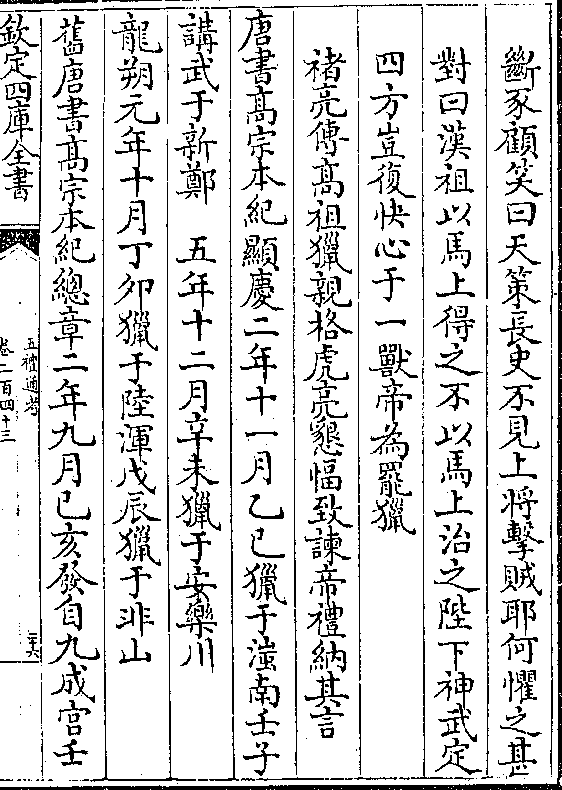 斷豕顧笑曰天策長史不見上將擊賊耶何懼之甚
對曰漢祖以馬上得之不以馬上治之陛下神武定
四方豈復快心于一獸帝為罷獵
禇亮傳高祖獵親格虎亮懇愊致諫帝禮納其言
唐書髙宗本紀顯慶二年十一月乙巳獵于滍南壬子
講武于新鄭　五年十二月辛未獵于安樂川
龍朔元年十月丁卯獵于陸渾戊辰獵于非山
舊唐書髙宗本紀總章二年九月己亥發自九成宫壬
欽定四庫全書
五禮通考
卷二百四十三
三十六